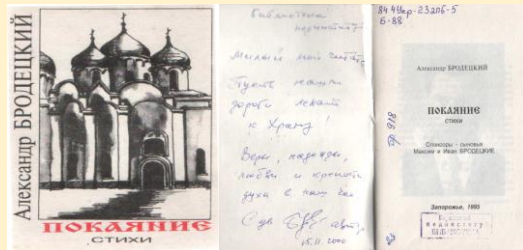 Александр БРОДЕЦКИЙ
ПОКАЯНИЕ
СТИХИ
Библиотека
Милый мой
Пусть наши
дороги лежат
к Храму!
Веры, надежды,
любви и крепости
духа в наш час
С ув. автор
15.11.2000
84.4Укр-
Б-88
Александр БРОДЕЦКИЙ
ПОКАЯНИЕ
СТИХИ
Спонсоры - сыновья
Максим и Иван БРОДЕЦКИЕ
Запорожье, 1995